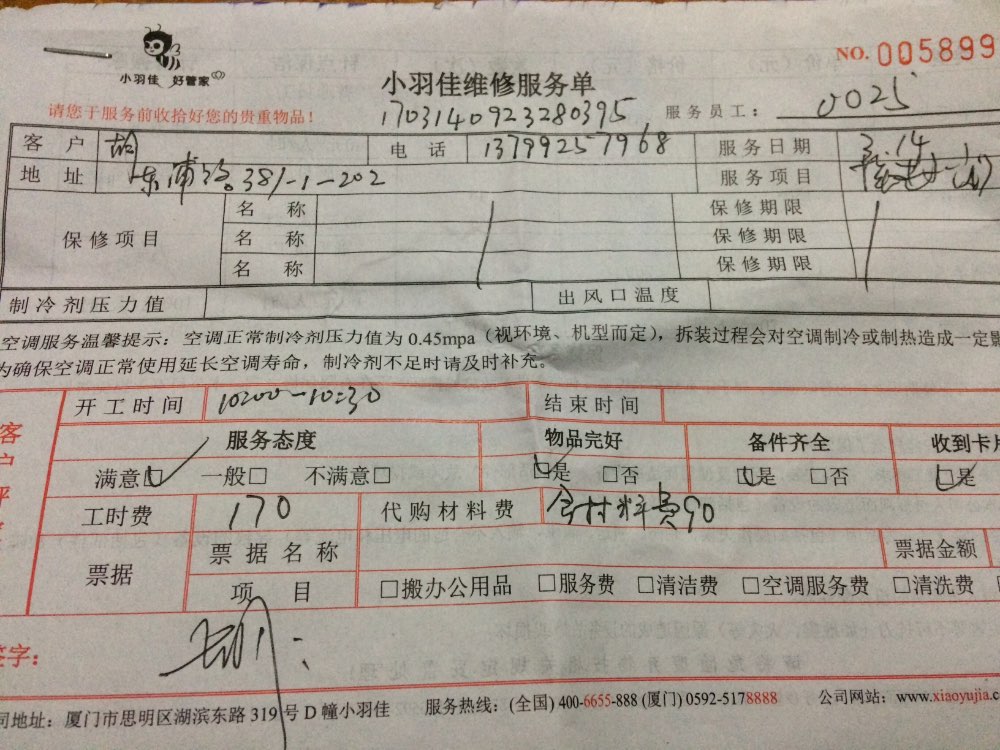 小羽佳 好管家
NO. 005899
小羽佳维修服务单
请您于服务前收拾好您的贵重物品!
1703140923280395
服务员工: 0025
客户 胡 电话 13799257968 服务日期 3.14
地址 东浦路381-1-202 服务项目
保修项目 名称 保修期限
名称 保修期限
名称 保修期限
制冷剂压力值 出风口温度
空调服务温馨提示:空调正常制冷剂压力值为 0.45mpa(视环境、机型而定),拆装过程会对空调制冷或制热造成一定影
为确保空调正常使用延长空调寿命,制冷剂不足时请及时补充。
开工时间 10:00-10:30 结束时间
服务态度 物品完好 备件齐全 收到卡片
满意☑ 一般□ 不满意□ ☑是 □否 ☑是 □否 ☑是
工时费 170 代购材料费 含材料费90
票据 票据名称 票据金额
项目 □搬办公用品 □服务费 □清洁费 □空调服务费 □清洗费
签字:
司地址:厦门市思明区湖滨东路 319 号 D 幢小羽佳 服务热线:(全国) 400-6655-888 (厦门) 0592-5178888 公司网站:www.xiaoyujia.c